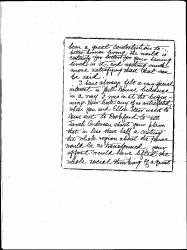 been a great contribution to
better human living, the world is
certainly far better for your having
lived in it, and nothing could be
more satisfying than that can
be said.
I have always felt a very special
interest in Hull House because
in a way I was in at the beginning.
How little any of us anticipated
when you and Ellen Starr used to
come out to Rockford to tell
Sarah Anderson about your plans
that in less than half a century
the whole region about the House
would be so transformed, your
effort would have lifted the
whole social thinking of a great